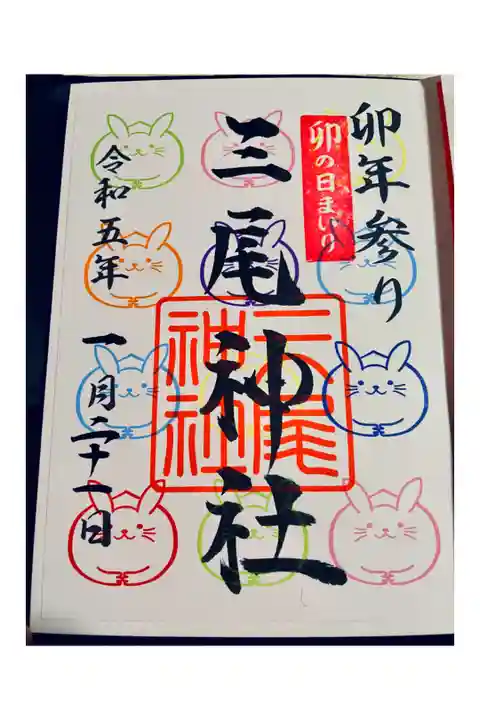 卯年参り
卯の日まいり
三尾神社
三尾神社
令和五年
一月二十一日